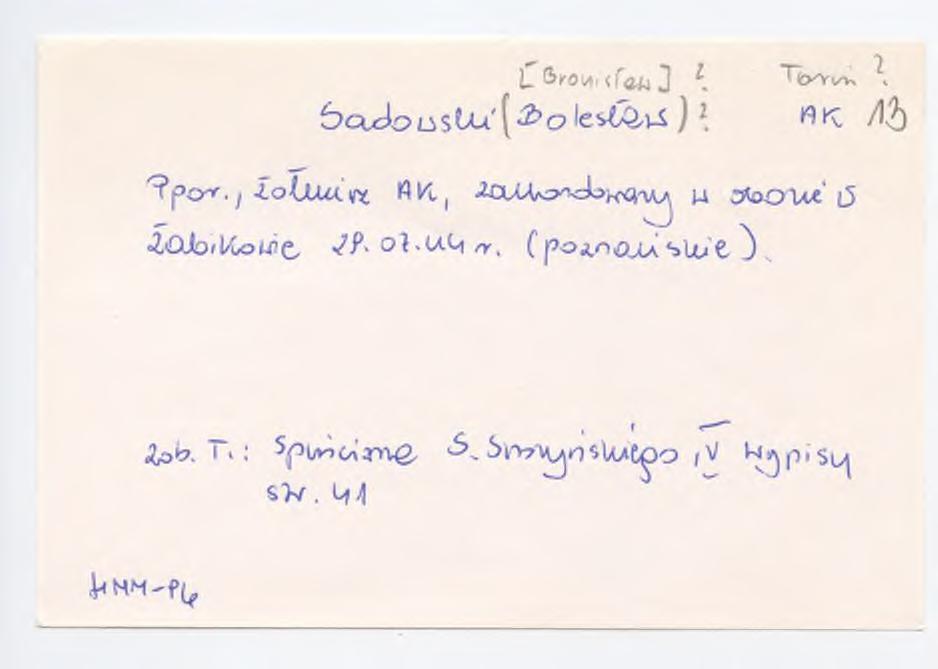 [Bronisław] ? Toruń ?
Sadowski (Bolesław) ? AK 13
Ppor., żołnierz AK, zamordowany w obozie w
Żabikowie 29.07.44 r. (poznańskie).
zob. T.: Spuścizna S. Smyńskiego, IV wypisy
str. 41